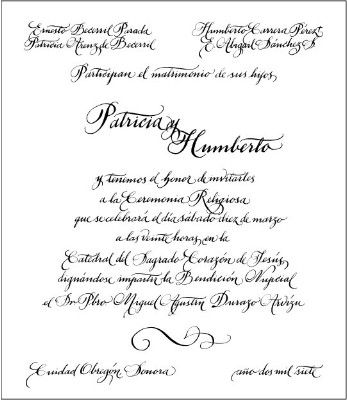 Ernesto Becerril Parada
Patricia Arenz de Becerril
Humberto Carrera Pérez
E. Abigail Sánchez S
Participan el matrimonio de sus hijos
Patricia y
Humberto
y tenemos el honor de invitarles
a la Ceremonia Religiosa
que se celebrará el día sábado diez de marzo
a las veinte horas, en la
Catedral del Sagrado Corazón de Jesús,
dignándose impartir la Bendición Nupcial
el Sr Pbro Miguel Agustín Durazo Arvizu
Ciudad Obregón Sonora
año dos mil siete